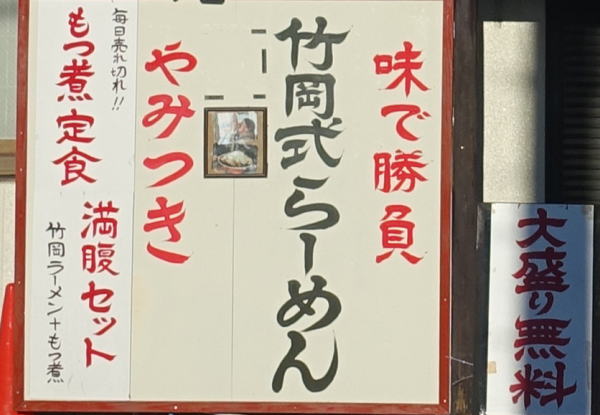 味で勝負
竹岡式らーめん
やみつき
毎日売れ切れ!!
もつ煮定食
満腹セット
竹岡ラーメン+もつ煮
大盛り無料